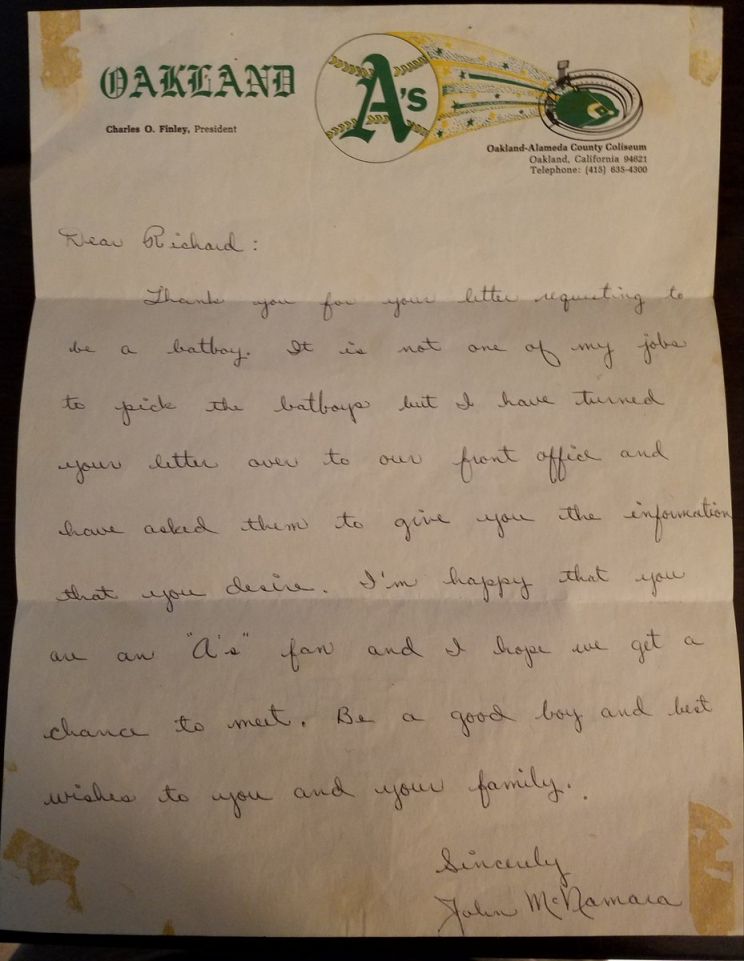 OAKLAND
A's
Charles O. Finley, President
Oakland-Alameda County Coliseum
Oakland, California 94621
Telephone: (415) 635-4300
Dear Richard:
Thank you for your letter requesting to
be a batboy. It is not one of my jobs
to pick the batboys but I have turned
your letter over to our front office and
have asked them to give you the information
that you desire. I'm happy that you
are an "A's" fan and I hope we get a
chance to meet. Be a good boy and best
wishes to you and your family.
Sincerely
John McNamara